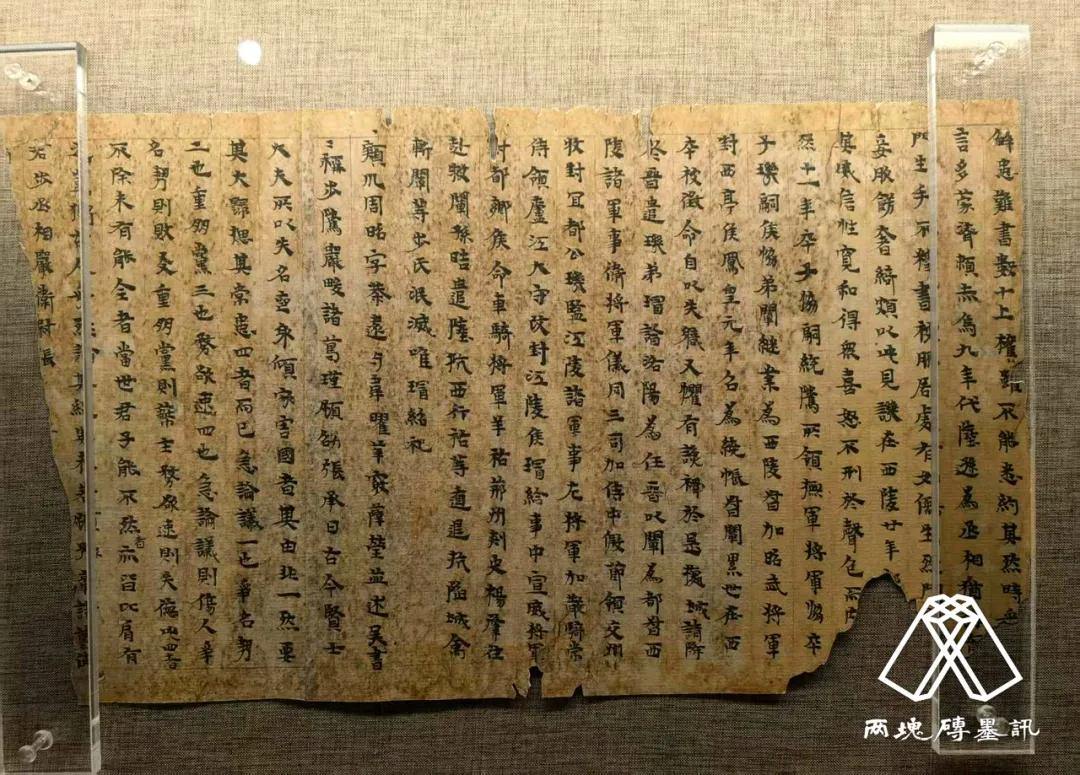 解患難書數十上權雖不能悉納其然時
言多蒙濟賴赤烏九年代陸遜為丞相猶
門生手不釋書被服居處有如儒生然門
妾服飾奢綺頗以此見譏在西陵廿年
其威信性寬和得眾喜怒不形於聲色而
然十一年卒子協嗣統騭所領撫軍將軍協卒
子璣嗣侯協弟闡繼業為西陵督加昭武將軍
封西亭侯鳳皇元年召為繞帳督闡累世在西
卒被徵命自以失職又懼有讒禍於是據城請降
於晉遣璣弟璿詣洛陽為任晉以闡為都督西
陵諸軍事衛將軍儀同三司加侍中假節領交州
牧封宜都公璣監江陵諸軍事左將軍加散騎常
侍領廬江太守改封江陵侯璿給事中宣威將軍
封都鄉侯命車騎將軍羊祜荊州刺史楊肇往
赴救闡孫晧遣陸抗西行祜等遁進抗陷城禽
斬闡等步氏泯滅唯璿紹祀
潁川周昭字恭遠与韋曜華覈薛瑩並述吳書
稱步騭嚴畯諸葛瑾顧劭張承曰古今賢士
大夫所以失名喪身傾家害國者其由非一然要
其大歸揔其常患四者而已急論議一也爭名勢
二也重朋黨三也務欲速四也急論議則傷人爭
名勢則敗友重朋黨則蔽主務欲速則失德此四者
不除未有能全者當世君子能不然者亦皆比肩有
若步丞相嚴衛尉張
两塊磚墨訊